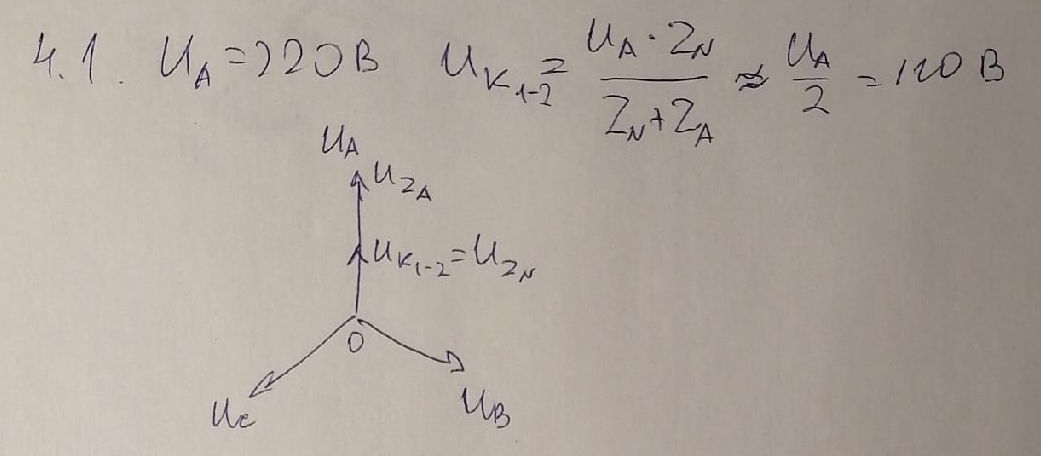 4.1. U_A = 220 В U_{K_{1-2}} = \frac{U_A \cdot Z_N}{Z_N + Z_A} ≈ \frac{U_A}{2} = 110 В
U_A
U_{Z_A}
U_{K_{1-2}} = U_{Z_N}
0
U_C
U_B